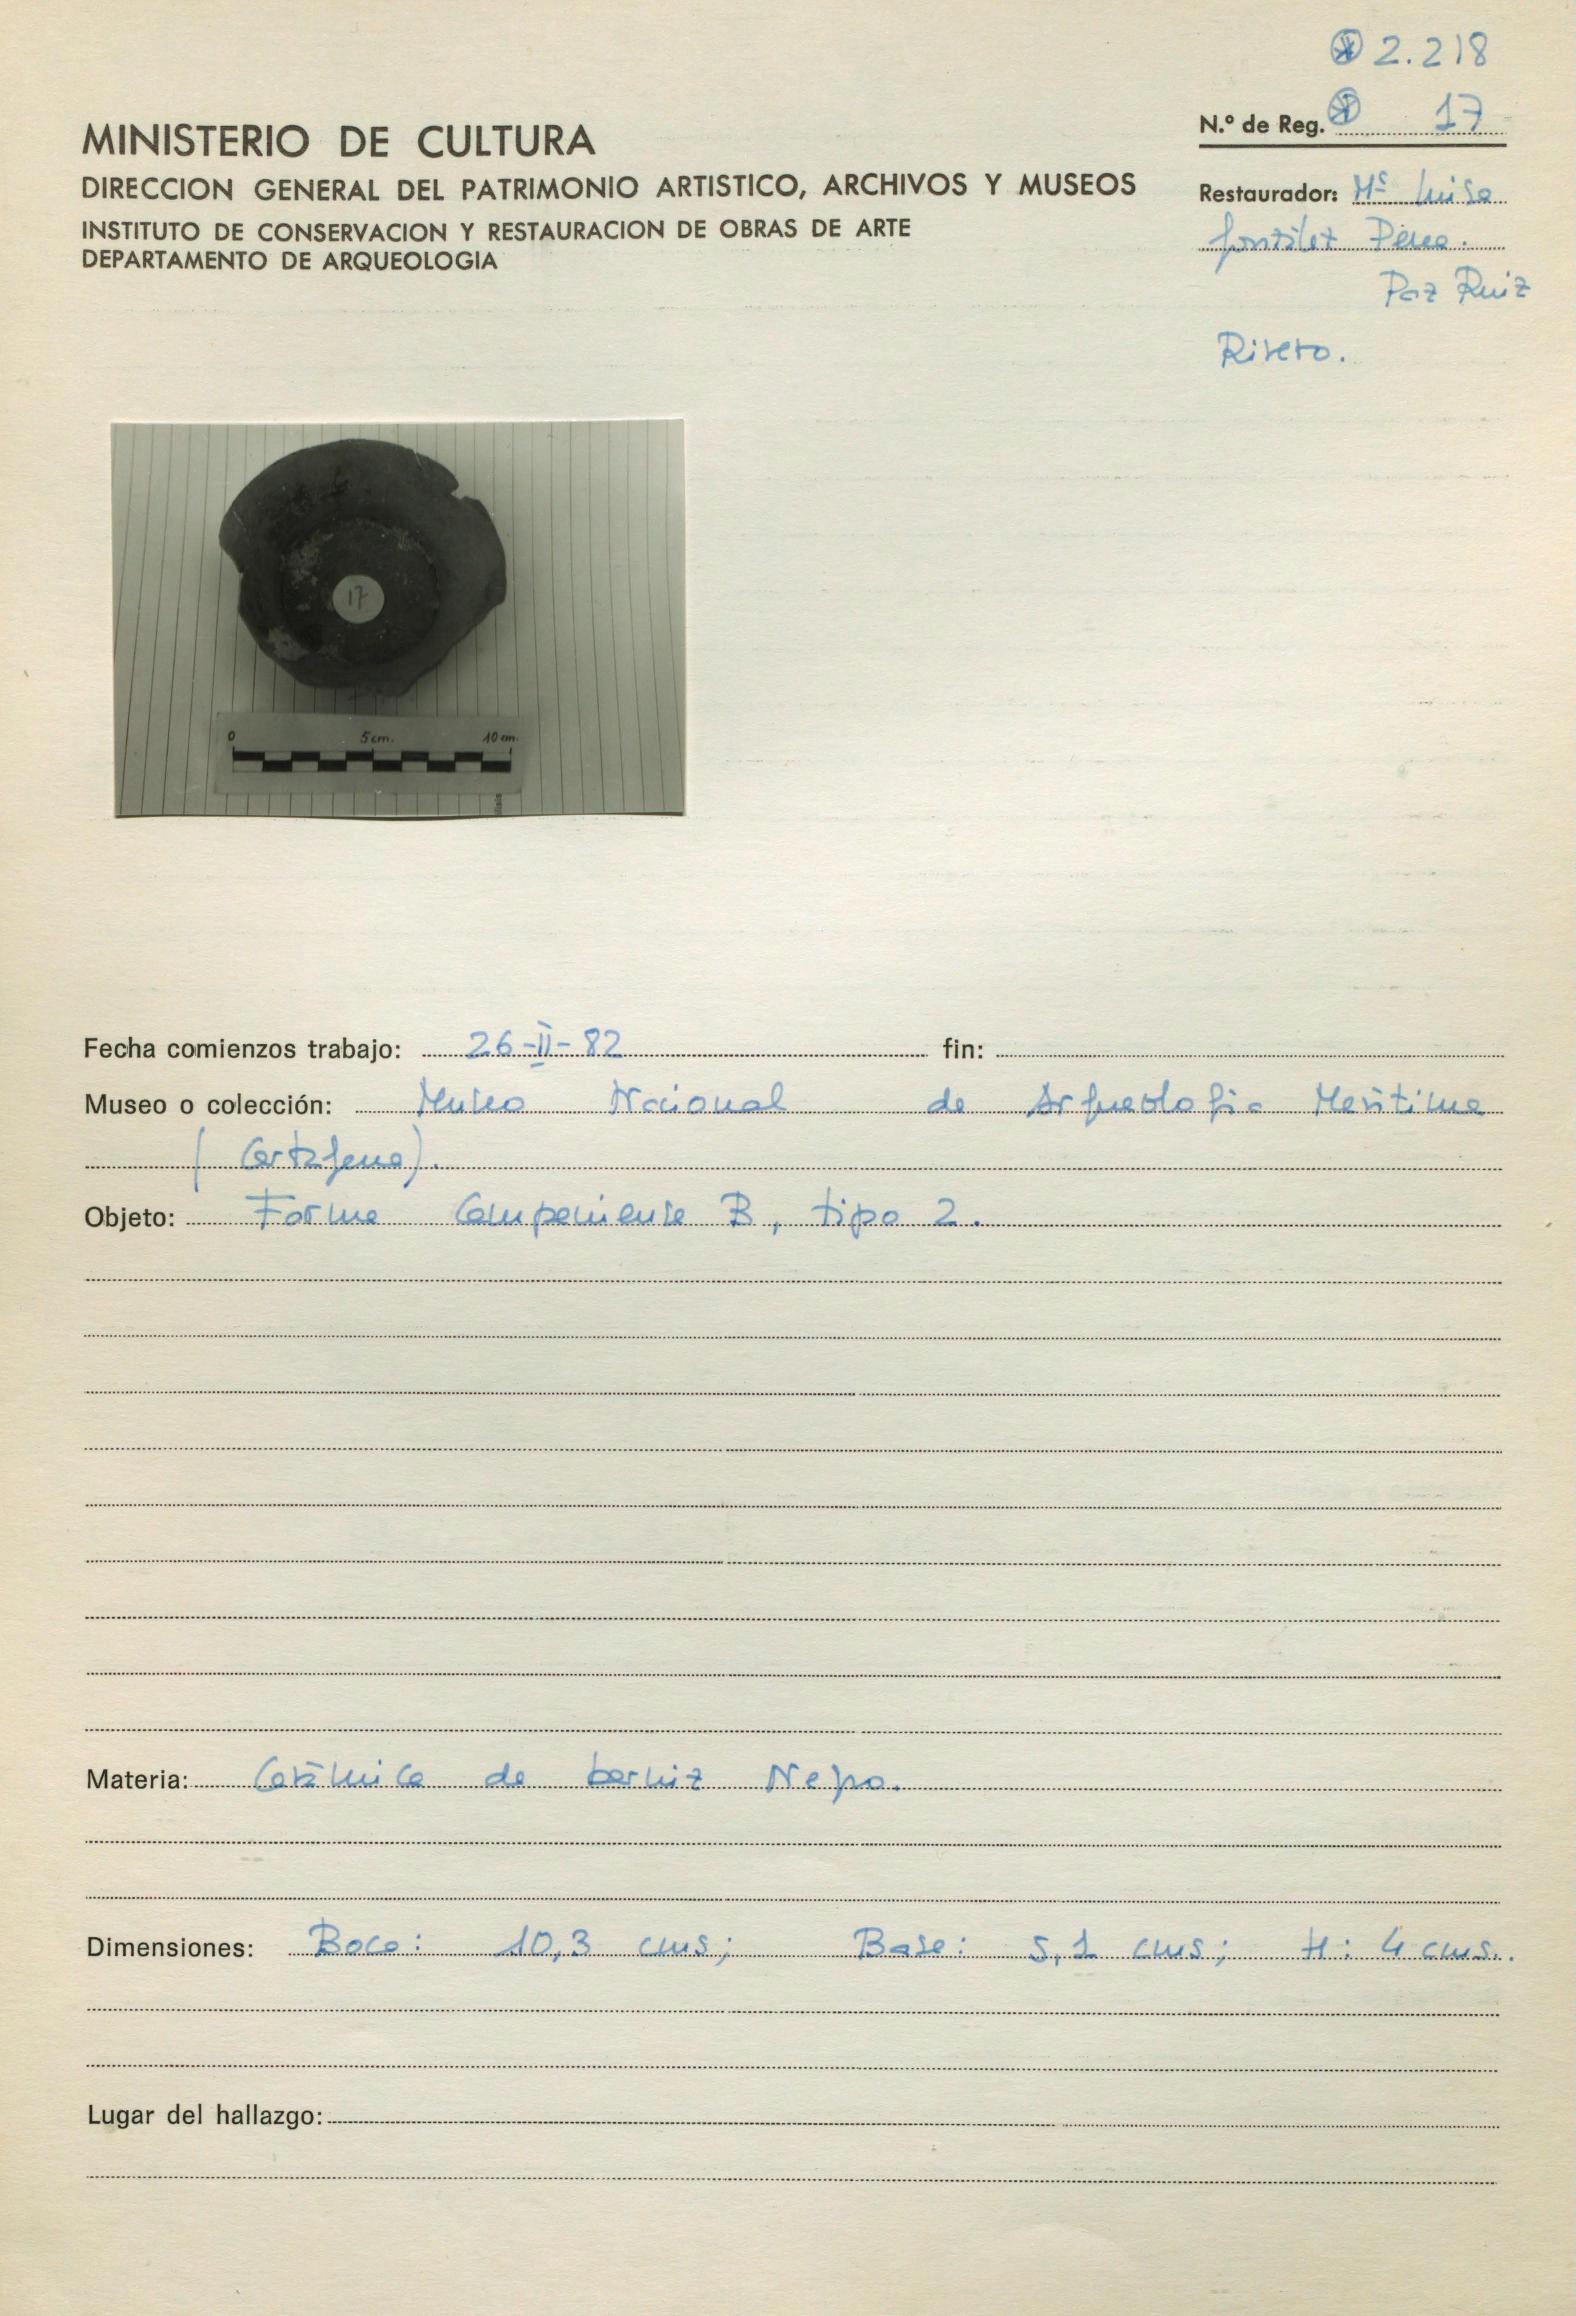 2.218
MINISTERIO DE CULTURA
N.º de Reg. 17
DIRECCION GENERAL DEL PATRIMONIO ARTISTICO, ARCHIVOS Y MUSEOS
Restaurador: Mª Luisa
INSTITUTO DE CONSERVACION Y RESTAURACION DE OBRAS DE ARTE
González Perea.
DEPARTAMENTO DE ARQUEOLOGIA
Paz Ruiz
Rivero.
17
0 5cm. 10cm.
Fecha comienzos trabajo: 26-II-82 fin:
Museo o colección: Museo Nacional de Arqueología Marítima
(Cartagena).
Objeto: Forma Campaniense B, tipo 2.
Materia: Cerámica de barniz Negro.
Dimensiones: Boca: 10,3 cms; Base: 5,1 cms; H: 4 cms.
Lugar del hallazgo: